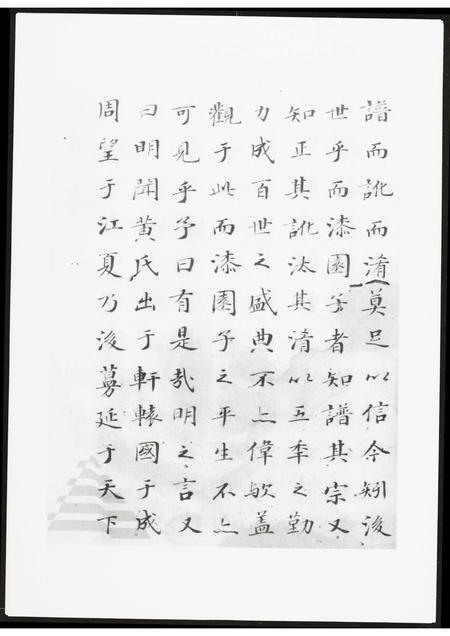 譜而訛而淆莫足以信今矧後
世乎而漆園子者知譜其宗又
知正其訛汰其淆以五年之勤
力成百世之盛典不亦偉歟蓋
觀于此而漆園子之平生不亦
可見乎予曰有是哉明之言又
曰明聞黃氏出于軒轅國于成
周望于江夏乃後蔓延于天下